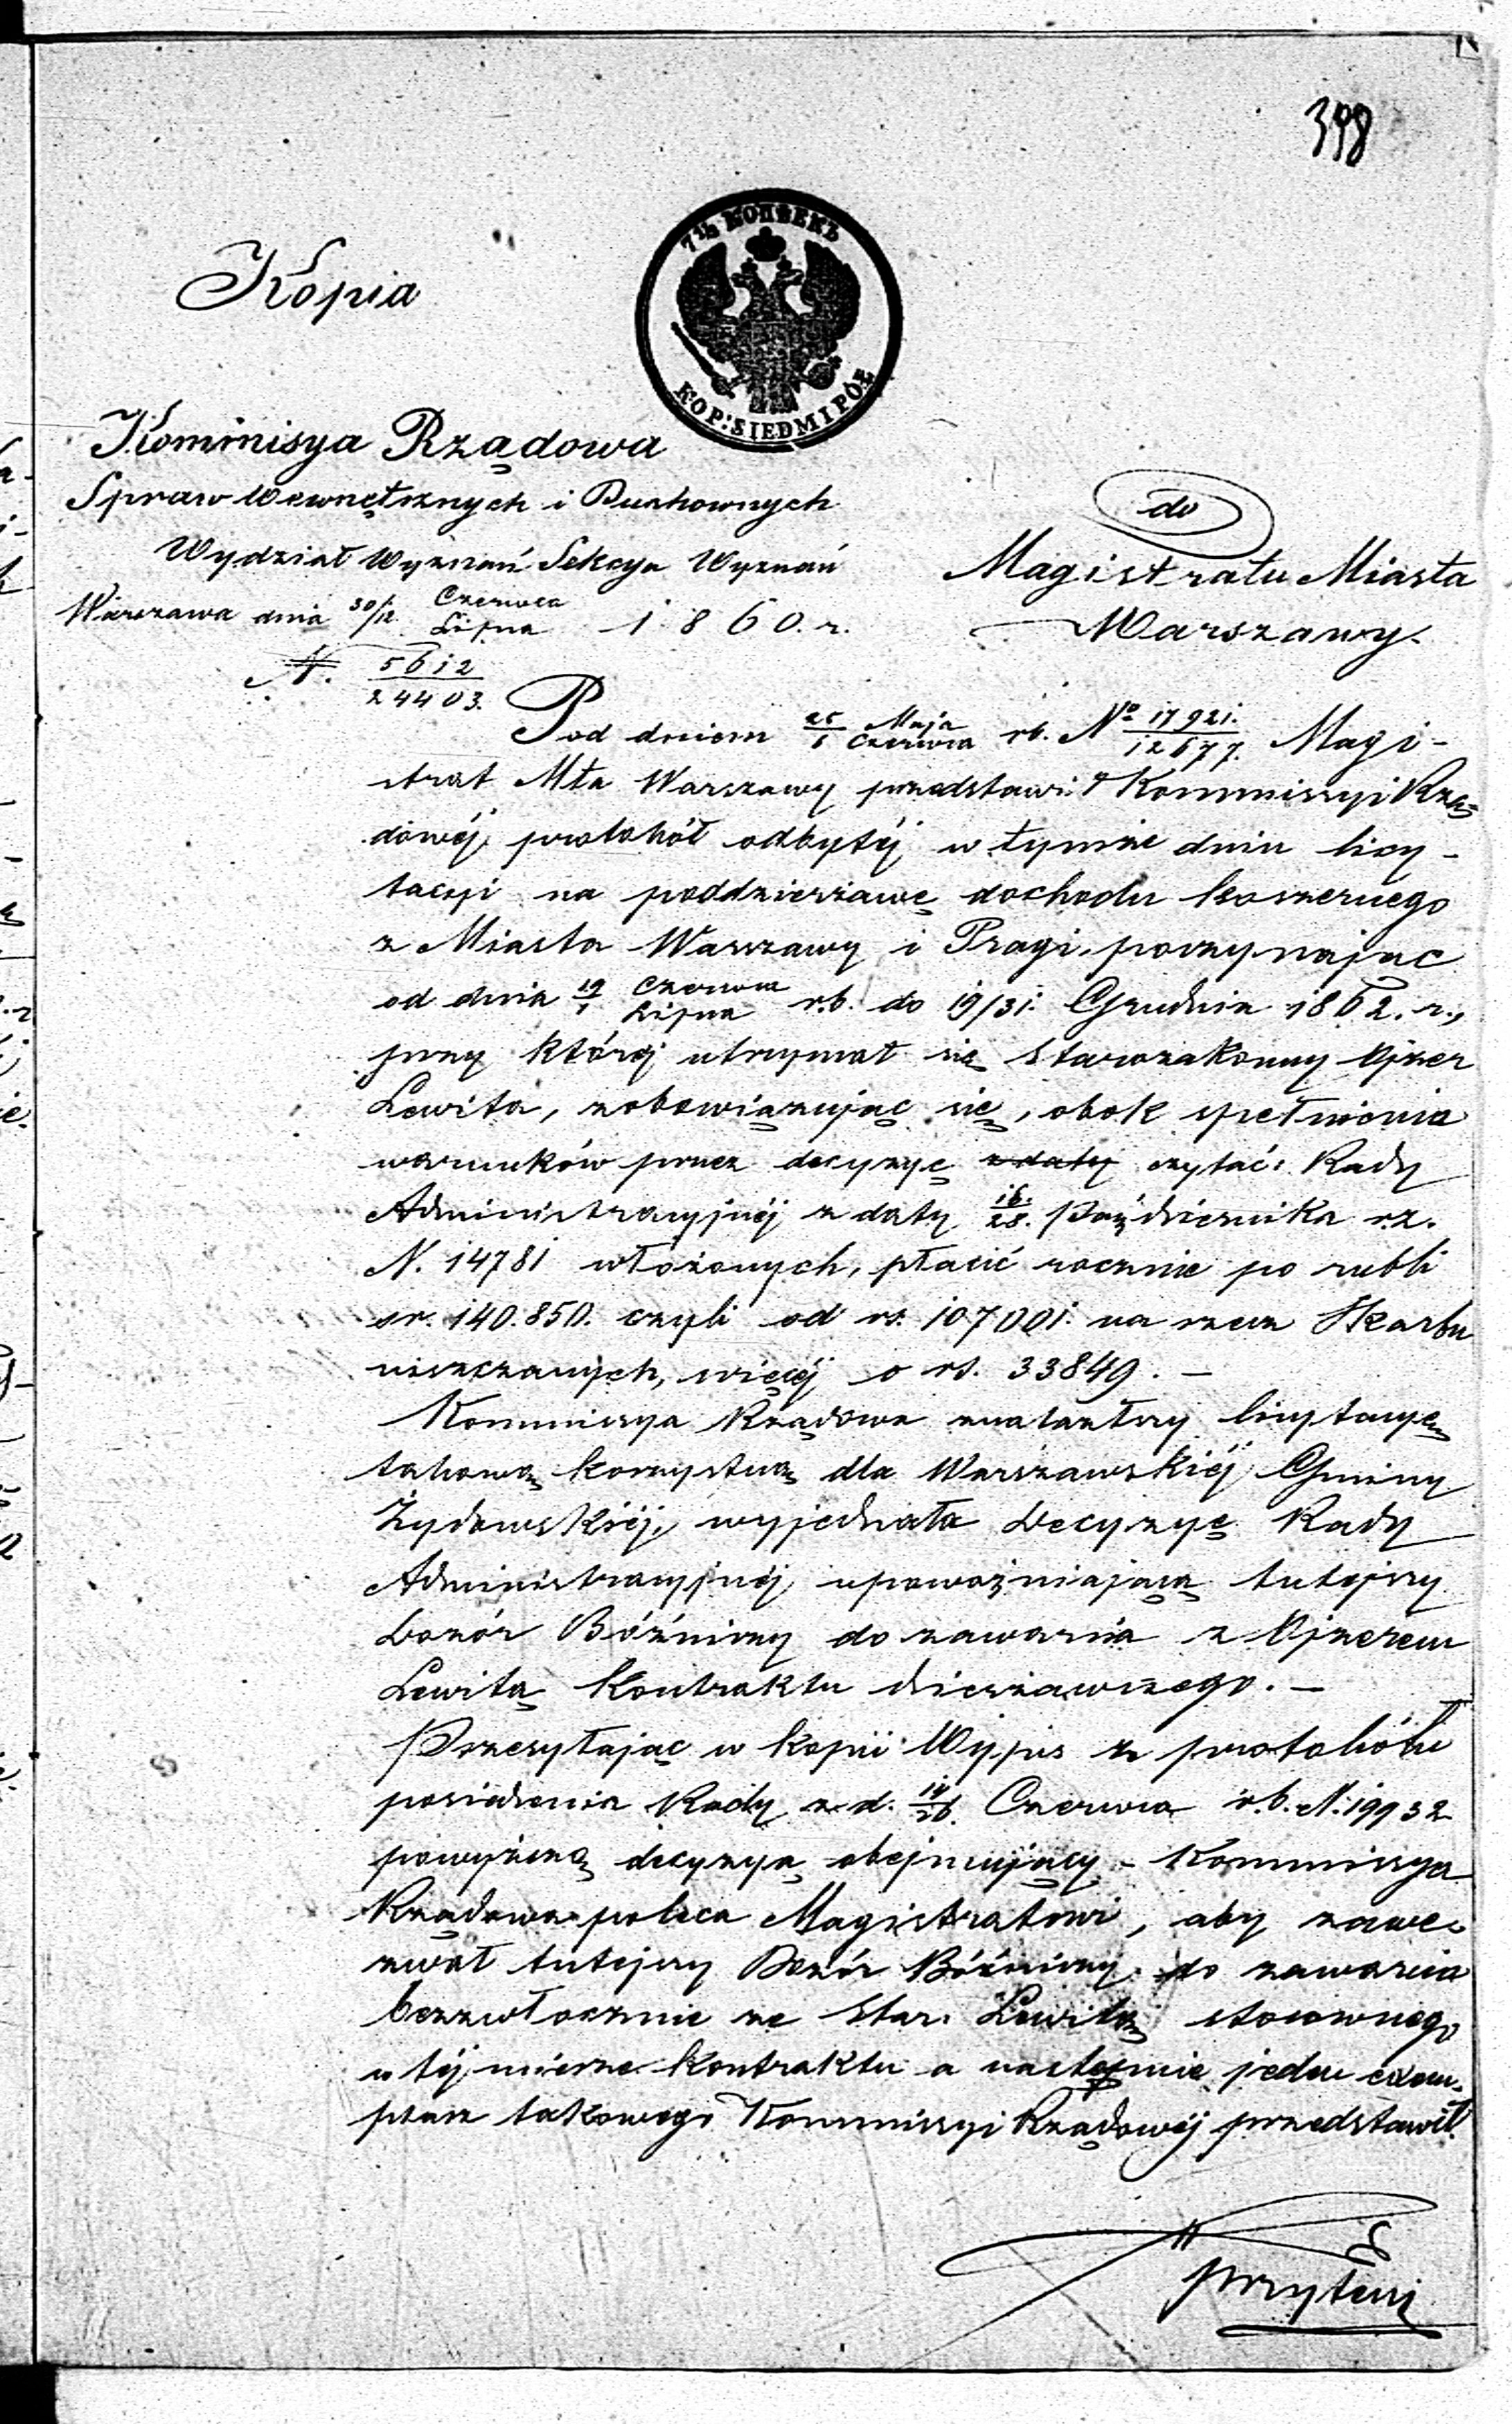 398
7½ КОПѢЕКЪ
KOP: SIEDM I PÓŁ
Kopia
Kommisya Rządowa
Spraw Wewnętrznych i Duchownych
Wydział Wyznań Sekcya Wyznań
Warszawa dnia 30/12 Czerwca/Lipna 1860. r.
N. 5612/24403.
do
Magistratu Miasta
Warszawy.
Pod dniem 25/6 Maja/Czerwca rb. No 17921./12677. Magi-
strat Mta Warszawy przedstawił Kommissyi Rzą-
dowéj, protokół odbytéj w tymże dniu licy-
tacyi na poddzierżawę dochodu koszernego
z Miasta Warszawy i Pragi, poczynając
od dnia 19/1 Czerwca/Lipna r.b. do 19/31. Grudnia 1862. r.,
przy któréj utrzymał się starozakonny Ojzer
Lewita, zobowiązując się, obok spełnienia
warunków przez decyzyę z daty Rady
Administracyjnéj z daty 16/28. Października r.z.
N. 14781 włożonych, płacić rocznie po rubli
sr. 140.850. czyli od rs. 107001. na rzecz Skarbu
uiszczanych, więcéj o rs. 33849. –
Kommissya Rządowa znalazłszy licytacyę
takową korzystną dla Warszawskiéj Gminy
Żydowskiéj, wyjednała decyzyę Rady
Administracyjnéj, upoważniającą tutejszy
Dozór Bóżniczy do zawarcia z Ojzerem
Lewitą Kontraktu dzierżawczego. –
Przesyłając w kopii Wypis z protokółu
posiedzenia Rady z d. 14/26. Czerwca r.b. N. 19932
powyższą decyzyą obejmujący – Kommissya
Rządowa poleca Magistratowi, aby zawe-
zwał tutejszy Dozór Bóżniczy do zawarcia
bezzwłocznie ze Star. Lewitą stosownego
w téj mierze Kontraktu a następnie jeden exem-
plarz takowego Kommissyi Rządowéj przedstawił.